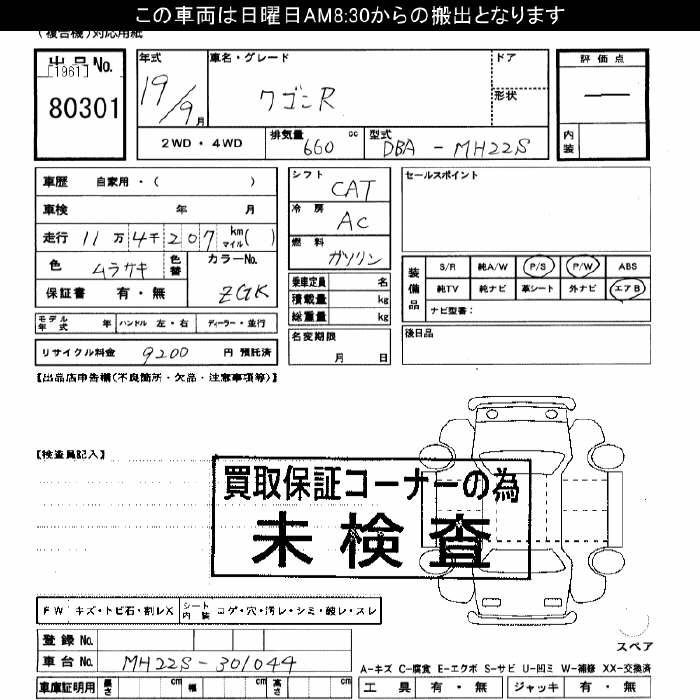 この車両は日曜日AM8:30からの搬出となります
(複合機)対応用紙
出品No.
[1961]
80301
年式
19/9月
車名・グレード
ワゴンR
ドア
形状
評価点
内装
2WD・4WD
排気量 660 cc
型式 DBA - MH22S
車歴 自家用・( )
車検 年 月
走行 11万4千207 km マイル( )
色 ムラサキ 色替
カラーNo. ZGK
保証書 有・無
シフト CAT
冷房 AC
燃料 ガソリン
乗車定員 名
積載量 kg
総重量 kg
セールスポイント
装備品
S/R 純A/W P/S P/W ABS
純TV 純ナビ 革シート 外ナビ エアB
ナビ型番:
モデル年式 年 ハンドル 左・右 ディーラー・並行
名変期限 月 日
後日品
リサイクル料金 9200 円 預託済
【出品店申告欄(不良箇所・欠品・注意事項等)】
【検査員記入】
買取保証コーナーの為
未検査
FW キズ・トビ石・割レX シート内装 コゲ・穴・汚レ・シミ・破レ・スレ
登録No.
車台No. MH22S-301044
スペア
A-キズ C-腐食 E-エクボ S-サビ U-凹ミ W-補修 XX-交換済
車庫証明用 長さ cm 幅 cm 高さ cm
工具 有・無 ジャッキ 有・無